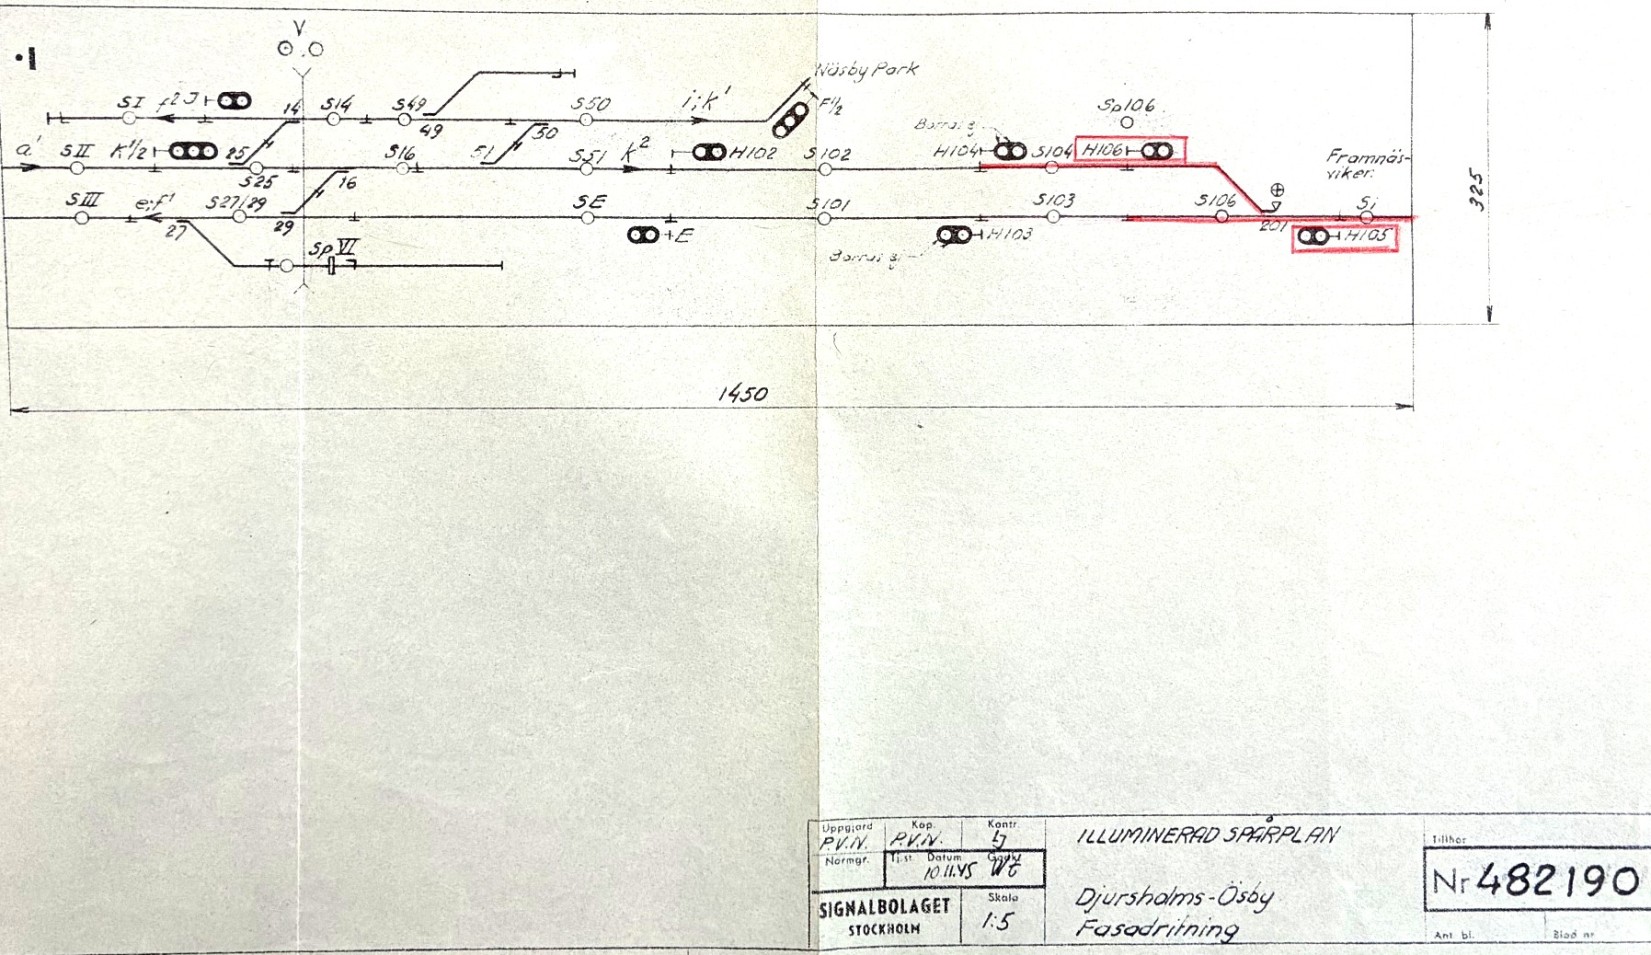 V
Näsby Park
SI
f2J
14
S14
S49
49
S50
50
i;k'
F1/2
Sp106
a'
SII
K1/2
25
S25
S16
16
51
S51
k2
H102
S102
H104
S104
H106
Framnäs-
viken
SIII
e;f'
27
S27/29
29
SE
S101
S103
S106
201
Si
Sp VI
E
H103
H105
325
1450
Uppgjord
P.V.N.
Kop.
P.V.N.
Kontr.
Normgr.
Tj.st.
Datum
10.11.45
Godk
Wt
SIGNALBOLAGET
STOCKHOLM
Skala
1:5
ILLUMINERAD SPÅRPLAN
Djursholms-Ösby
Fasadritning
Tillhör
Nr 482190
Ant. bl.
Blad nr